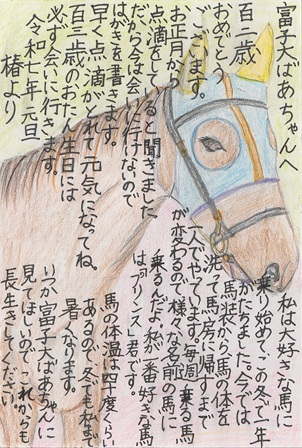 富子大ばあちゃんへ
百二歳
おめでとう
ございます。
お正月から
点滴をしてると聞きました、
だから今は会いに行けないので
はがきを書きます。
早く点滴がとれて元気になってね。
百三歳のおたん生日には
必ず会いに行きます。
令和七年 元旦
椿より
私は大好きな馬に
乗り始めてこの冬で一年
がたちました。今では
馬装から馬の体を
洗って馬房に帰すまで
一人でやっています。毎週乗る馬
が変わるので、様々な名前の馬に
乗るんだよ。私が一番好きな馬
は『プリンス』君です。
馬の体温は四十度くらい
あるので、冬でも私まで
暑くなります。
いつか富子大ばあちゃんに
見てほしいので、これからも
長生きしてください。